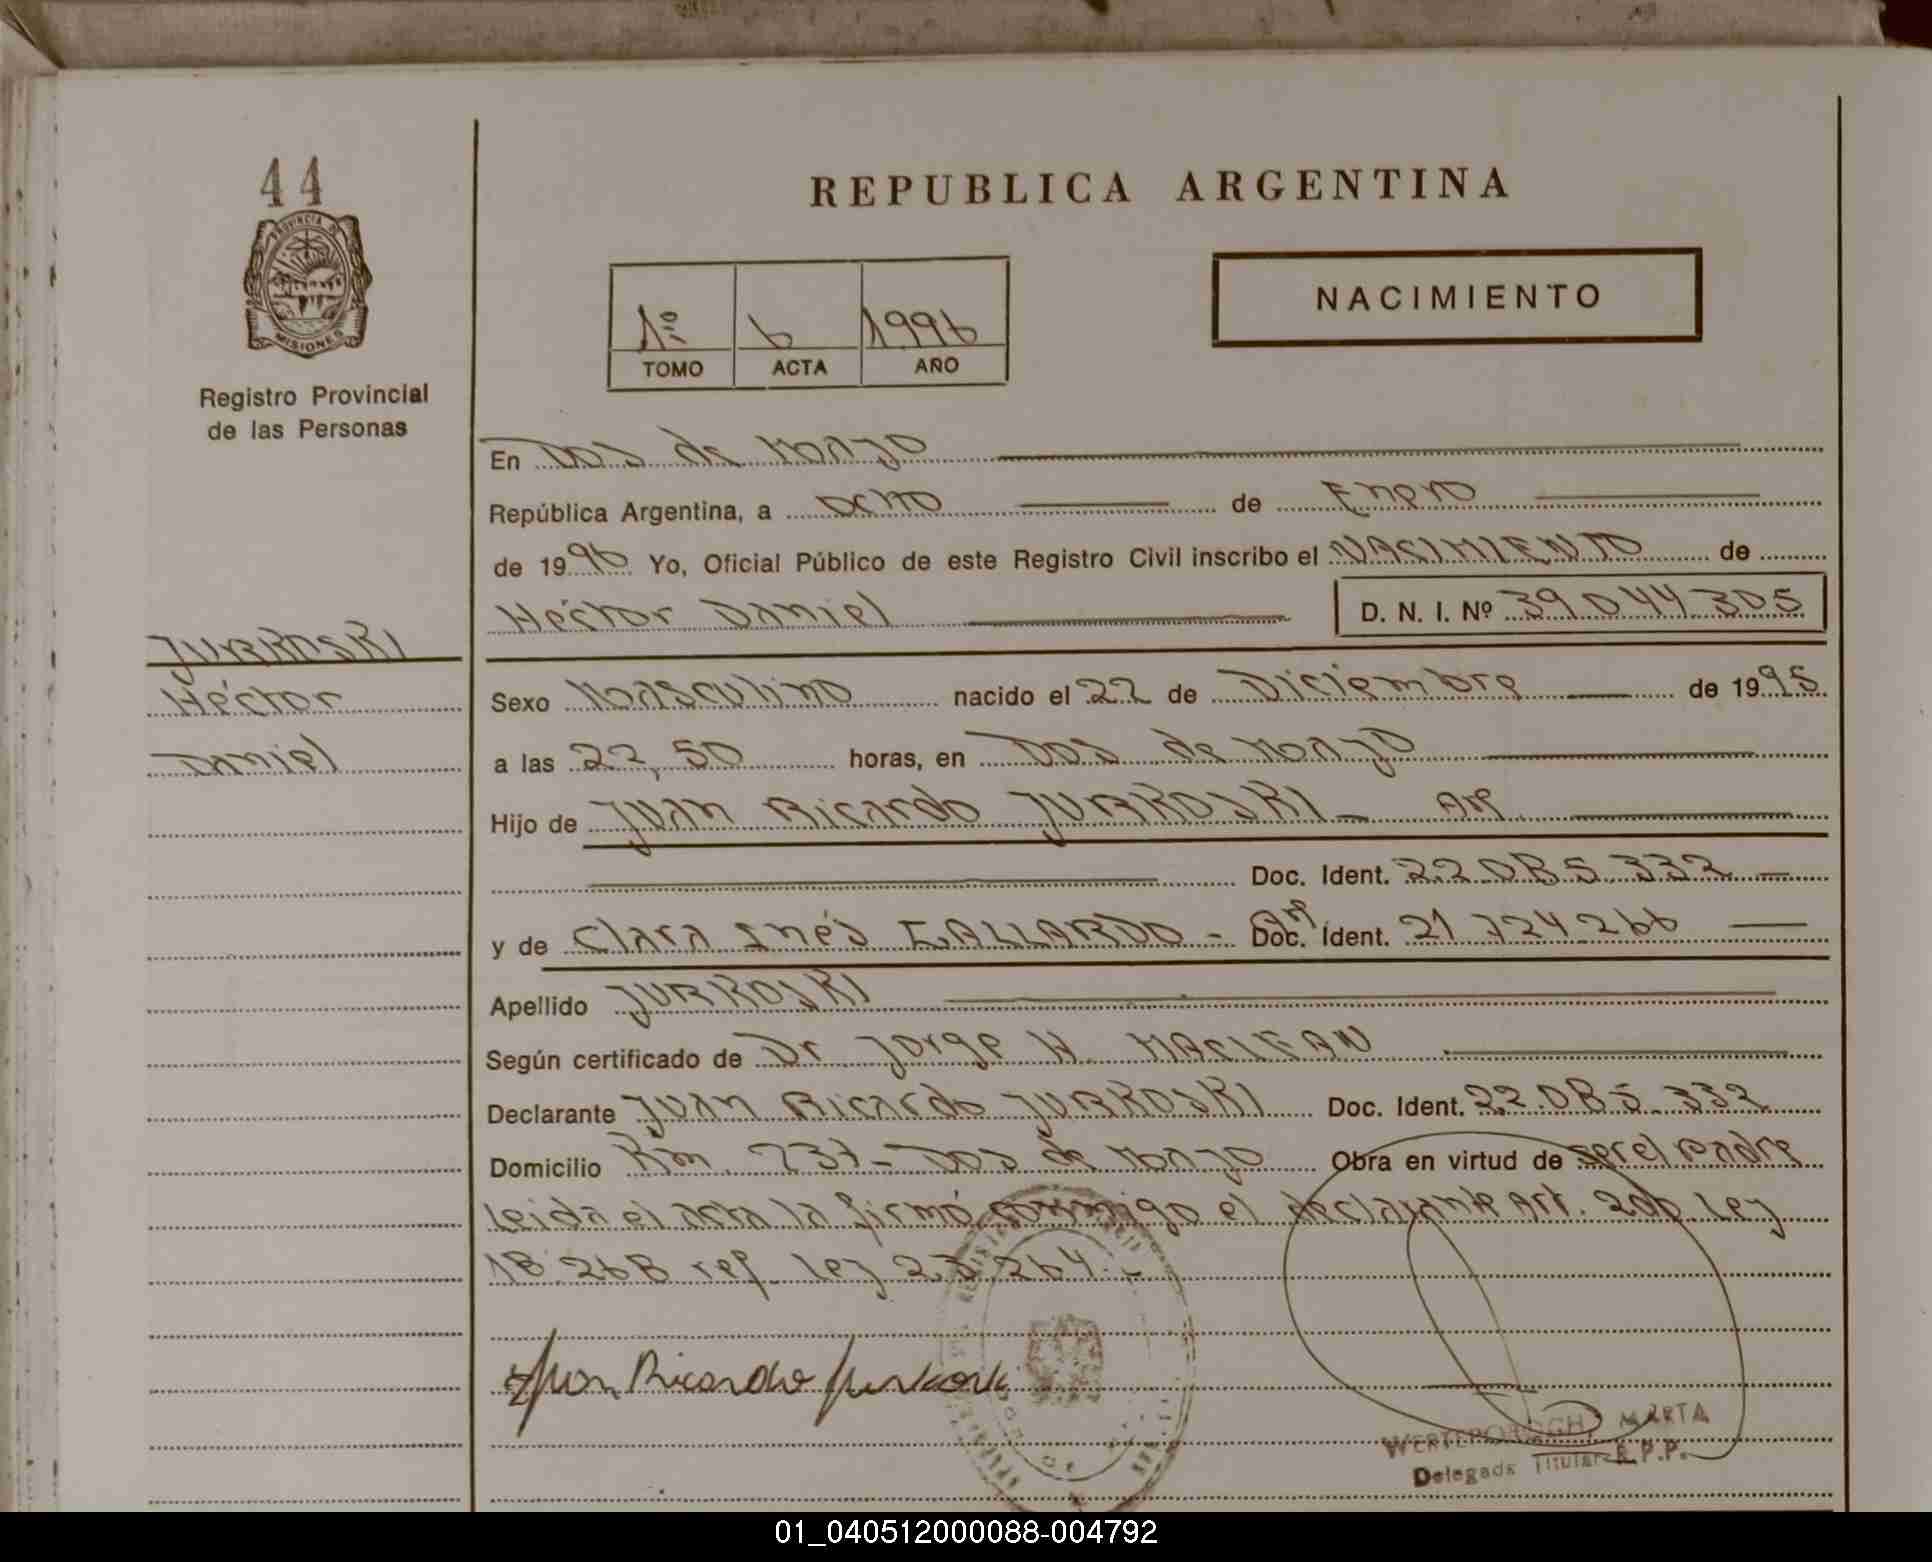 44
PROVINCIA DE
MISIONES
Registro Provincial
de las Personas
REPUBLICA ARGENTINA
1º 6 1996
TOMO ACTA AÑO
NACIMIENTO
En Dos de Mayo
República Argentina, a ocho de Enero
de 1996 Yo, Oficial Público de este Registro Civil inscribo el NACIMIENTO de
Héctor Daniel D. N. I. Nº 39044305
JURKOSKI
Héctor
Daniel
Sexo Masculino nacido el 22 de Diciembre de 1995
a las 22,50 horas, en Dos de Mayo
Hijo de Juan Ricardo JURKOSKI - Ar
Doc. Ident. 22.085.332
y de Clara Inés GALLARDO - Ar Doc. Ident. 21.724.266
Apellido JURKOSKI
Según certificado de Dr Jorge W. MACLEAN
Declarante Juan Ricardo JURKOSKI Doc. Ident. 22.085.332
Domicilio Km. 237 - Dos de Mayo Obra en virtud de ser el padre
Leída el acta la firmó conmigo el declarante Art. 206 Ley
18.268 ref. Ley 23.264.-
Juan Ricardo Jurkoski
MARTA
Delegada Titular R.P.P.
01_040512000088-004792